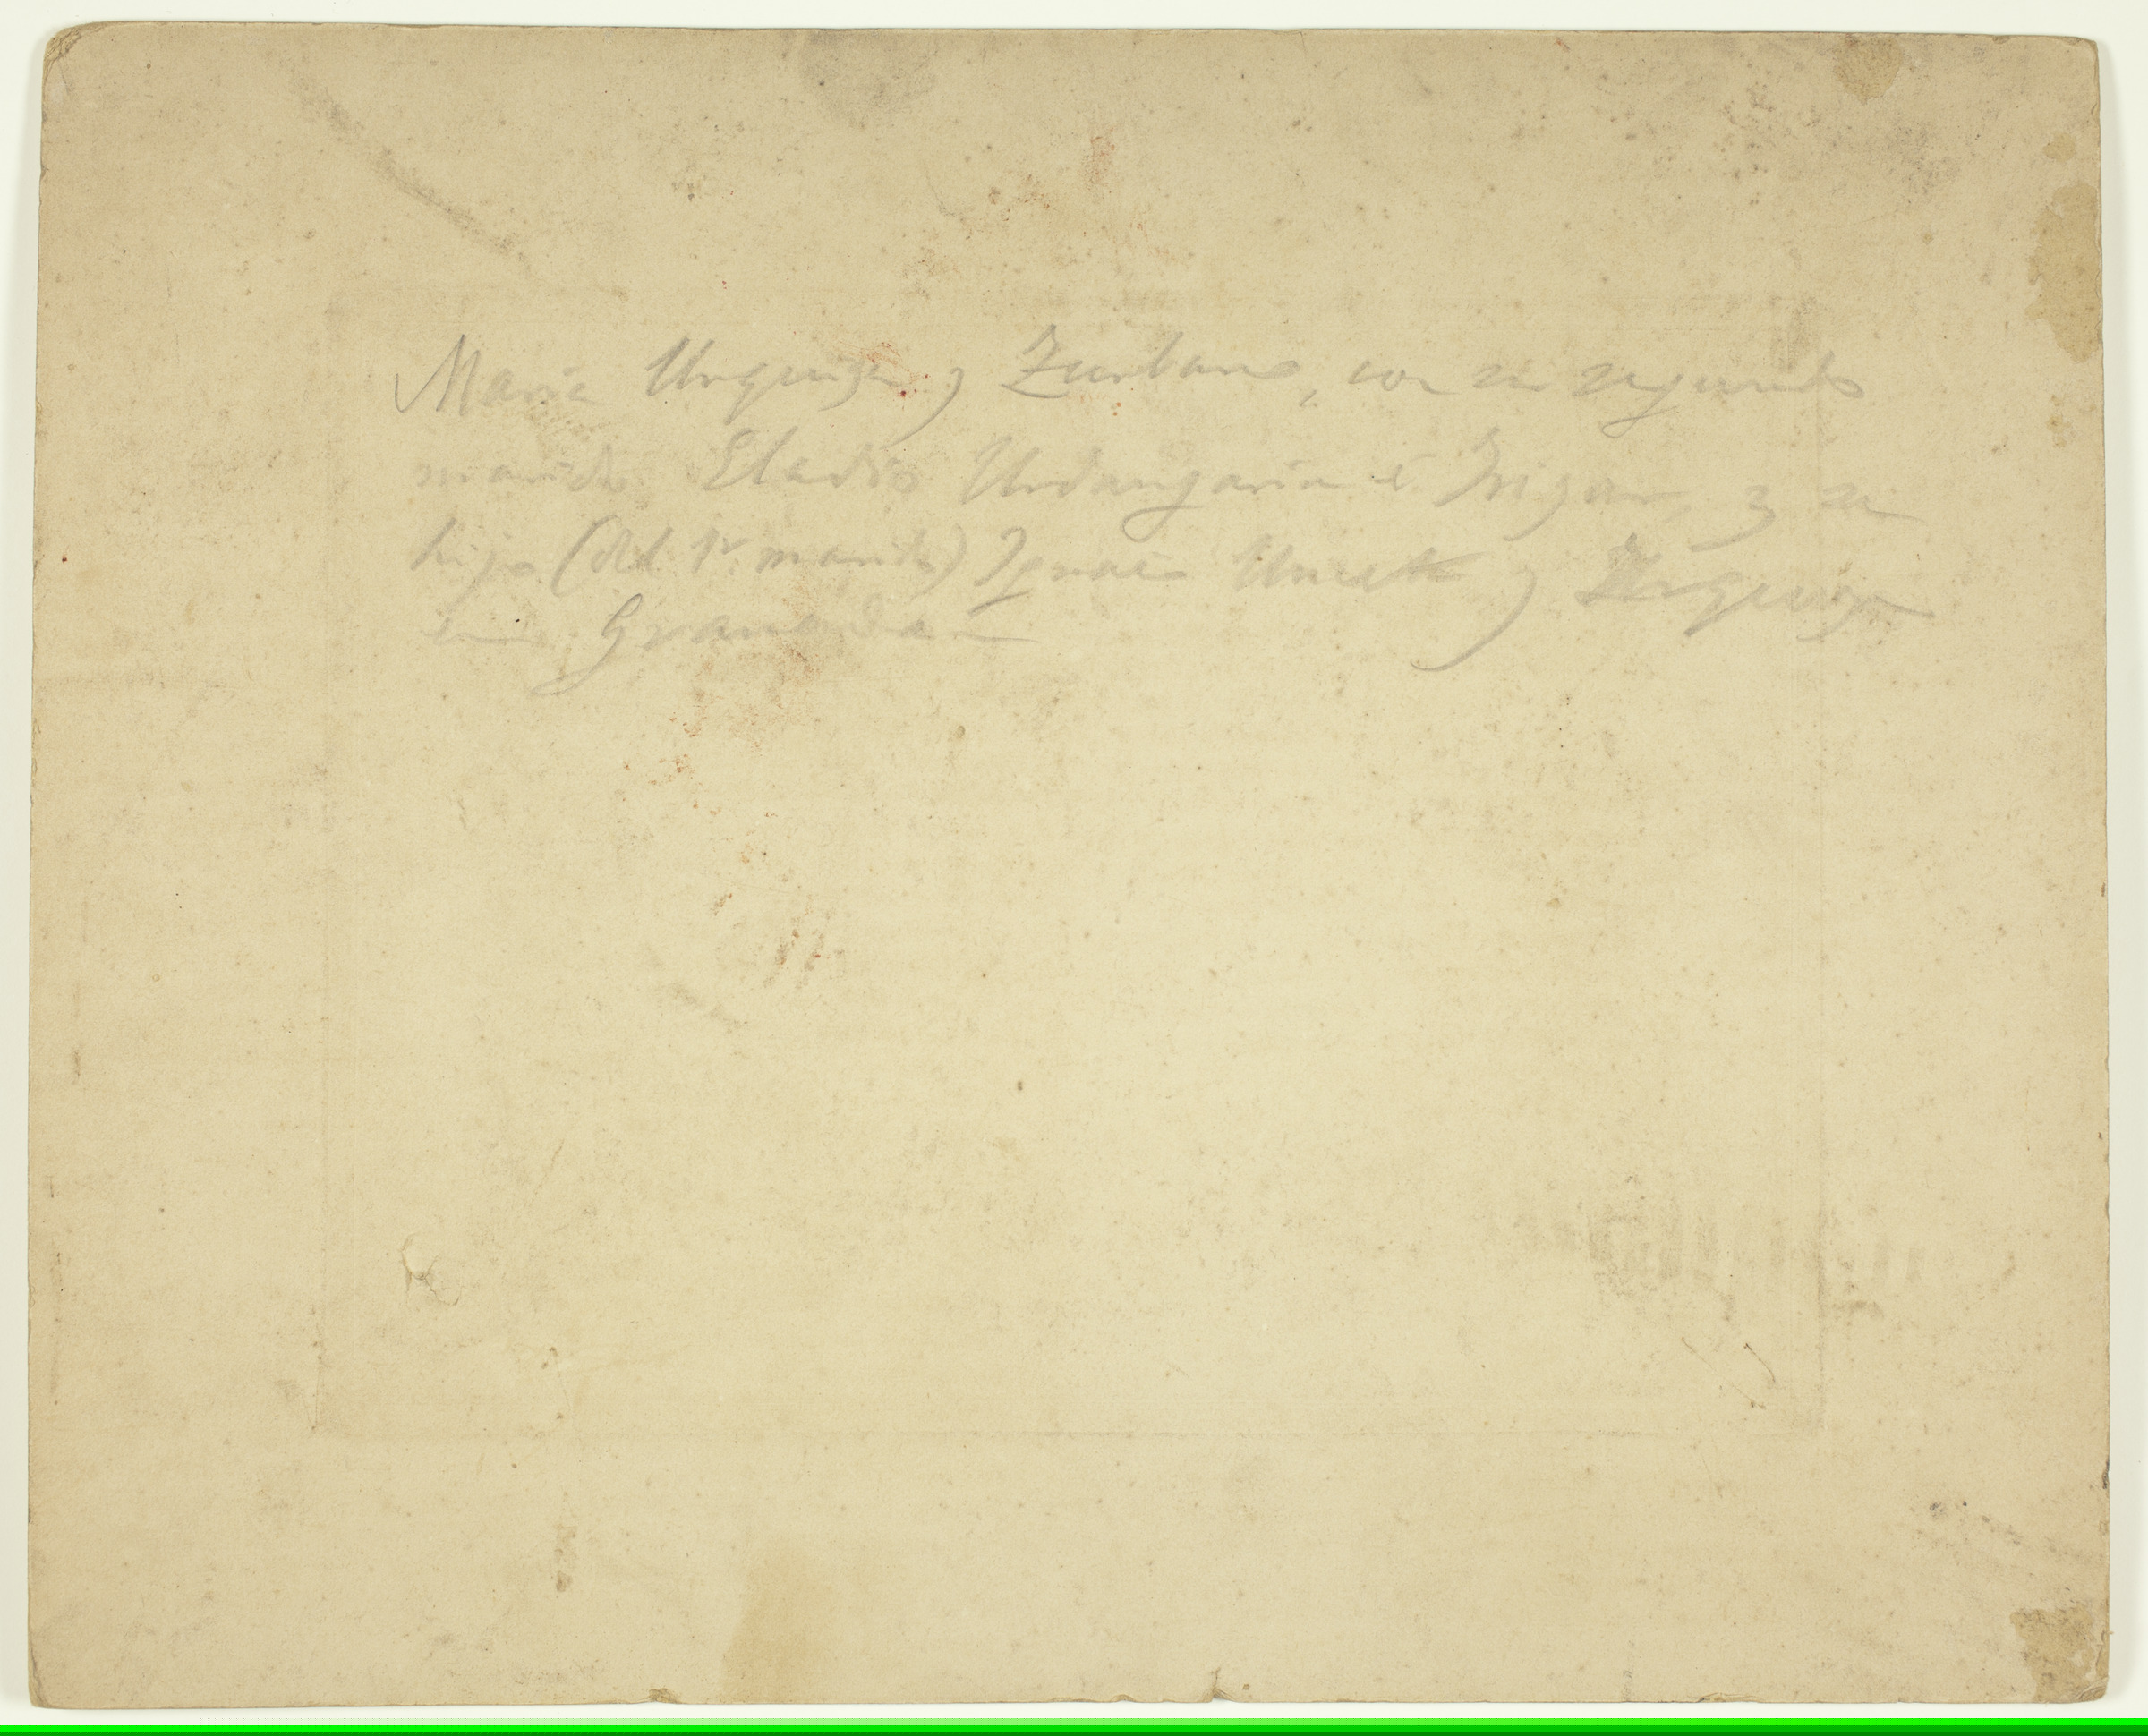 María Urquiza y Zurbano, con su segundo
marido Eladio Urdangarín é Irigar, y su
hijo (del 1r. marido) Ignacio y Urquiza
en Granada